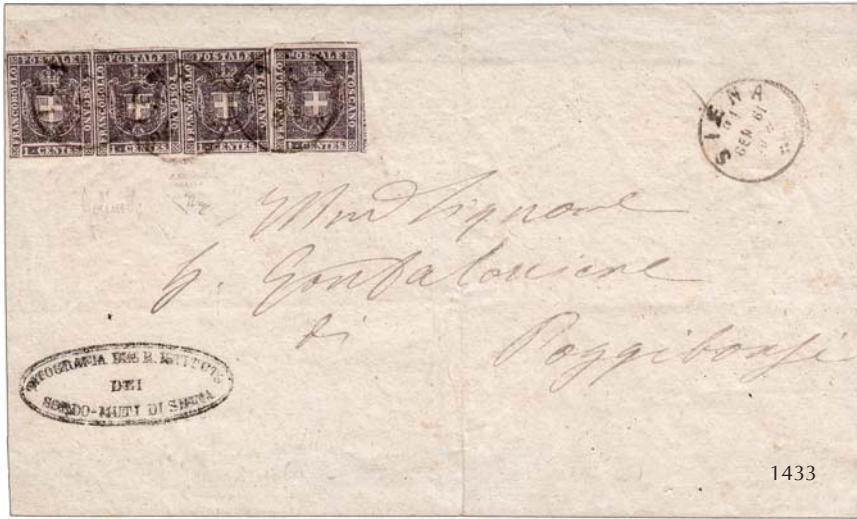 FRANCOBOLLO POSTALE TOSCANO 1·CENTES. FRANCOBOLLO POSTALE TOSCANO 1·CENTES. FRANCOBOLLO POSTALE TOSCANO 1·CENTES. FRANCOBOLLO POSTALE TOSCANO 1·CENTES.
SIENA
GEN 61
Signore
Gonfaloniere
di
Poggibonsi
DEI
SORDO-MUTI DI SIENA
1433